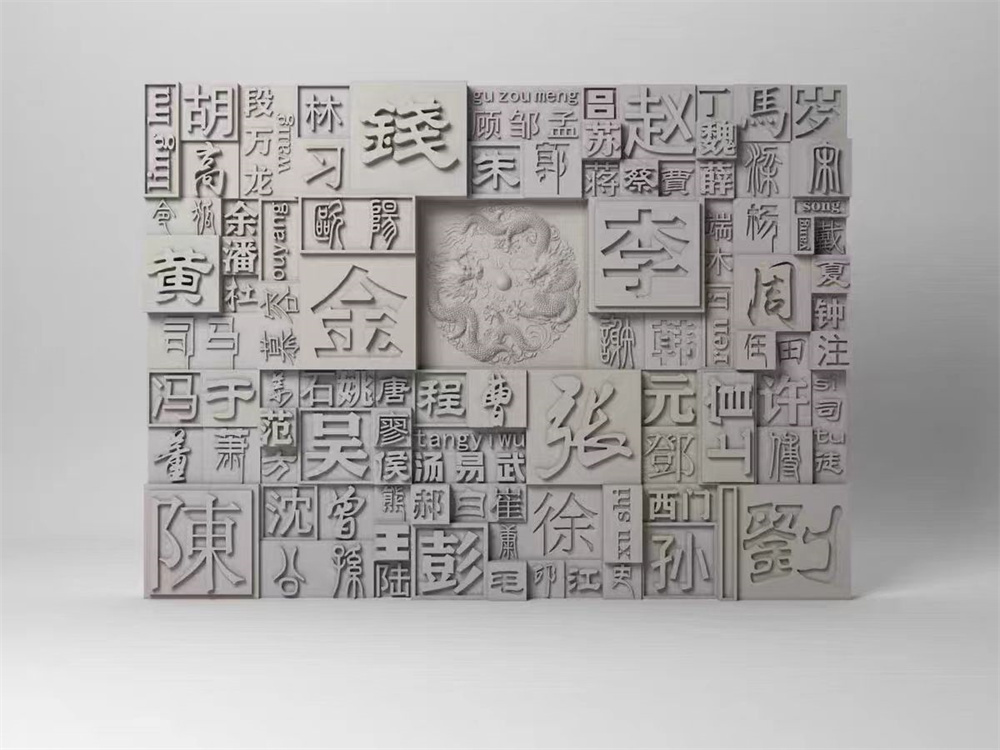 胡
高
段
万
龙
林
习
錢
gu zou meng
顾 邹 孟
朱
郭
吕
苏
赵
蒋 蔡 賈
丁
魏
薛
馬
梁
岁
宋
song
戴
余
潘
杜
黄
司 马
歐 陽
金
李
端
木
謝
韩
ren
杨
周
任 田
夏
钟
注
冯 于
董
萧
范
方
石 姚
吴
唐
廖
侯
程 曹
tang yi wu
汤 易 武
张
元
鄧
许
傅
si
司
tu
徒
陳
沈
曾
孫
熊
郝 白 崔
王
陆
彭
肃
毛
徐
江
xu shi
史
西门
孙
劉